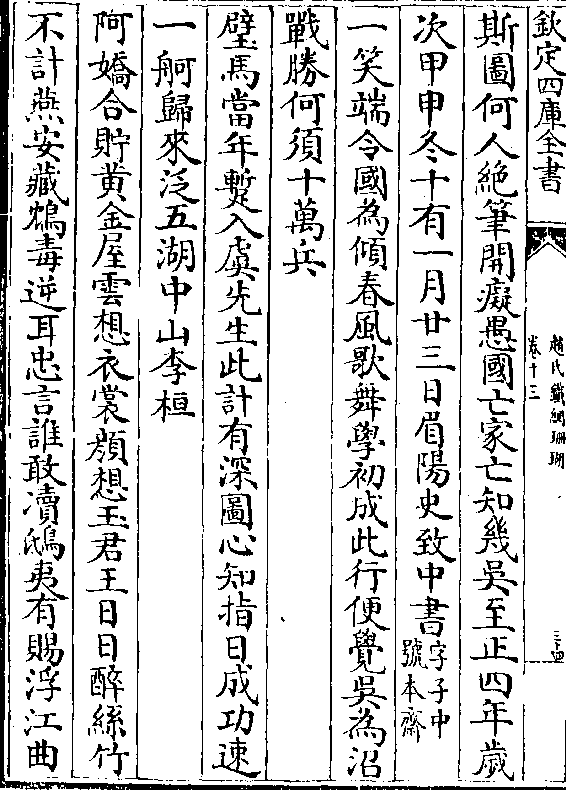 欽定四庫全書
趙氏鐵網珊瑚
卷十三
三十四
斯圖何人絶筆開癡愚國亡家亡知幾吳至正四年歲
次甲申冬十有一月廿三日眉陽史致中書字子中
號本齋
一笑端令國為傾春風歌舞學初成此行便覺吳為沼
戰勝何須十萬兵
璧馬當年蹔入虞先生此計有深圖心知指日成功速
一舸歸來泛五湖中山李桓
阿嬌合貯黄金屋雲想衣裳顔想玉君王日日醉絲竹
不計燕安藏鴆毒逆耳忠言誰敢瀆鴟夷有賜浮江曲